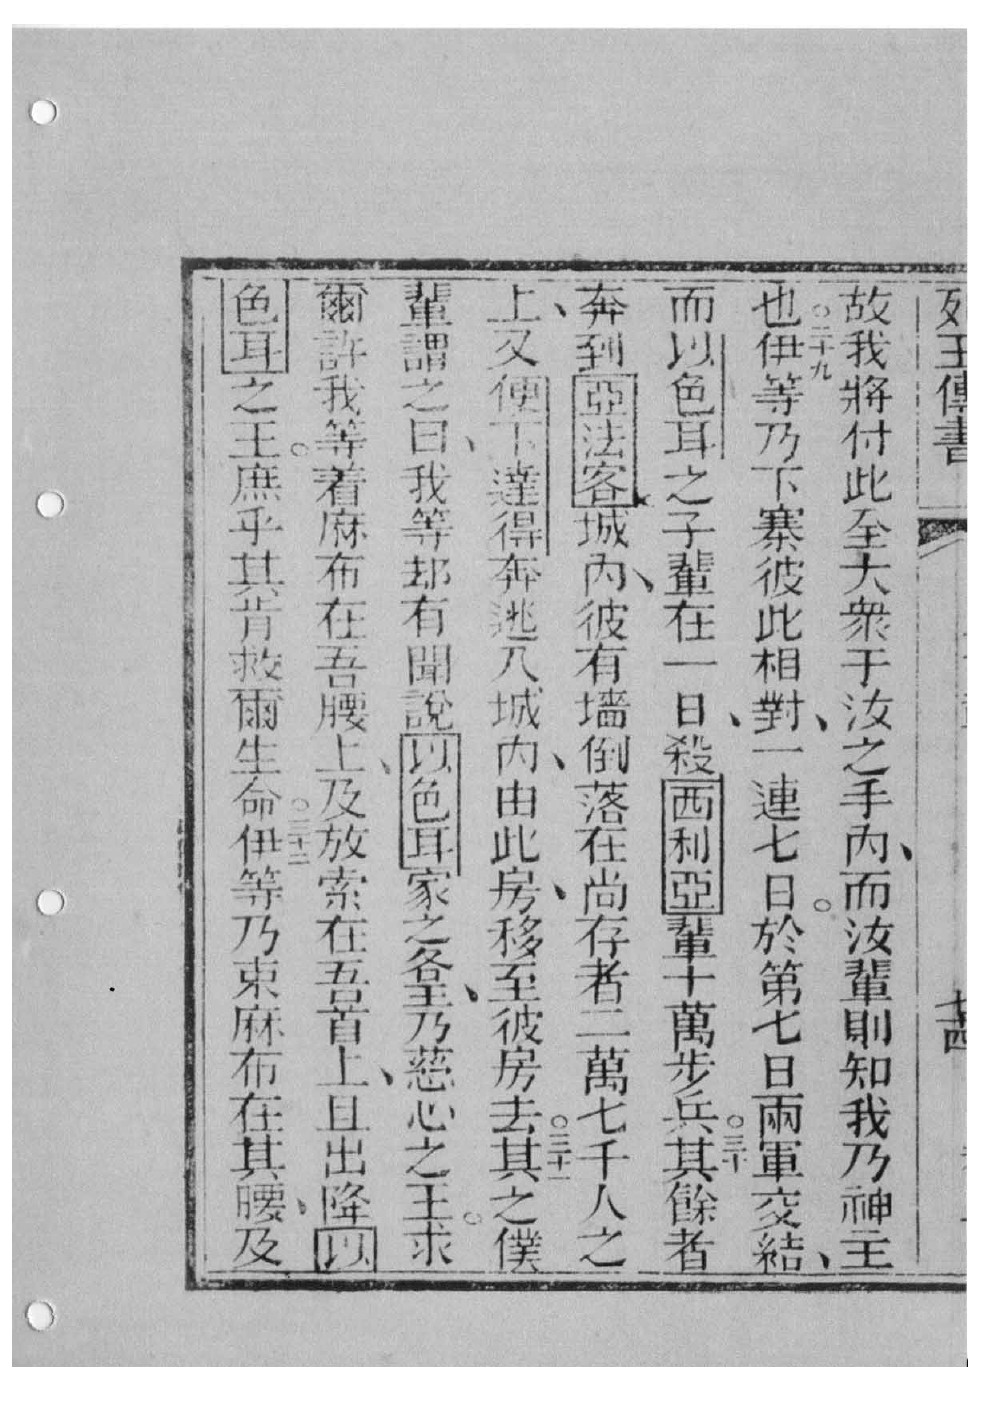 列王傳書 七十四
故我將付此至大衆于汝之手內、而汝輩則知我乃神主
也。二十九伊等乃下寨彼此相對、一連七日。於第七日兩軍交結、
而以色耳之子輩在一日、殺西利亞輩十萬步兵。三十其餘者
奔到亞法客城內、彼有墻倒落在尚存者二萬七千人之
上、又便下達得奔逃入城內、由此房、移至彼房去。三十一其之僕
輩謂之曰、我等却有聞說以色耳家之各王、乃慈心之王。求
爾許我等着麻布在吾腰上、及放索在吾首上、且出降以
色耳之王。庶乎其肯救爾生命。三十二伊等乃束麻布在其腰、及